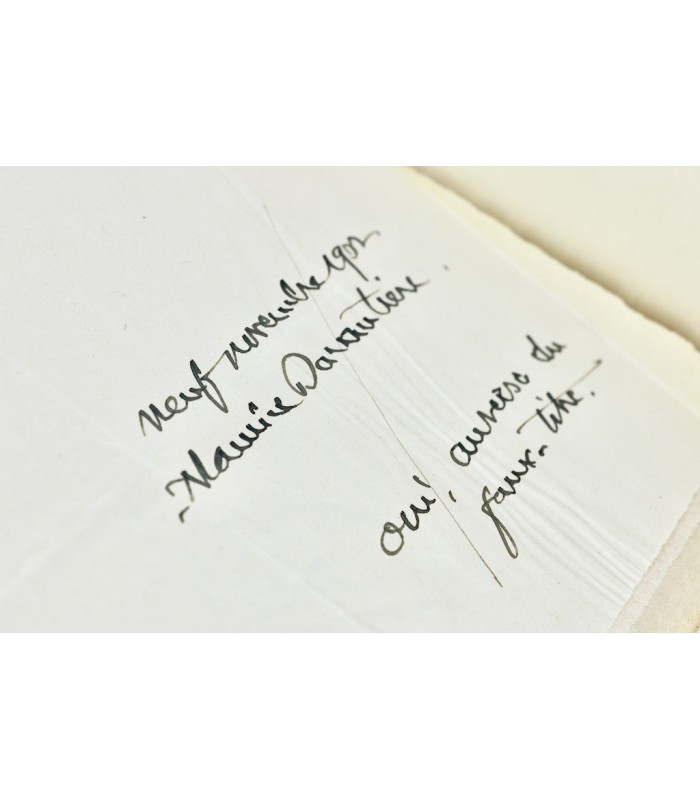 neuf novembre 1902
- Maurice Darantiere.
oui, au verso du
faux-titre.